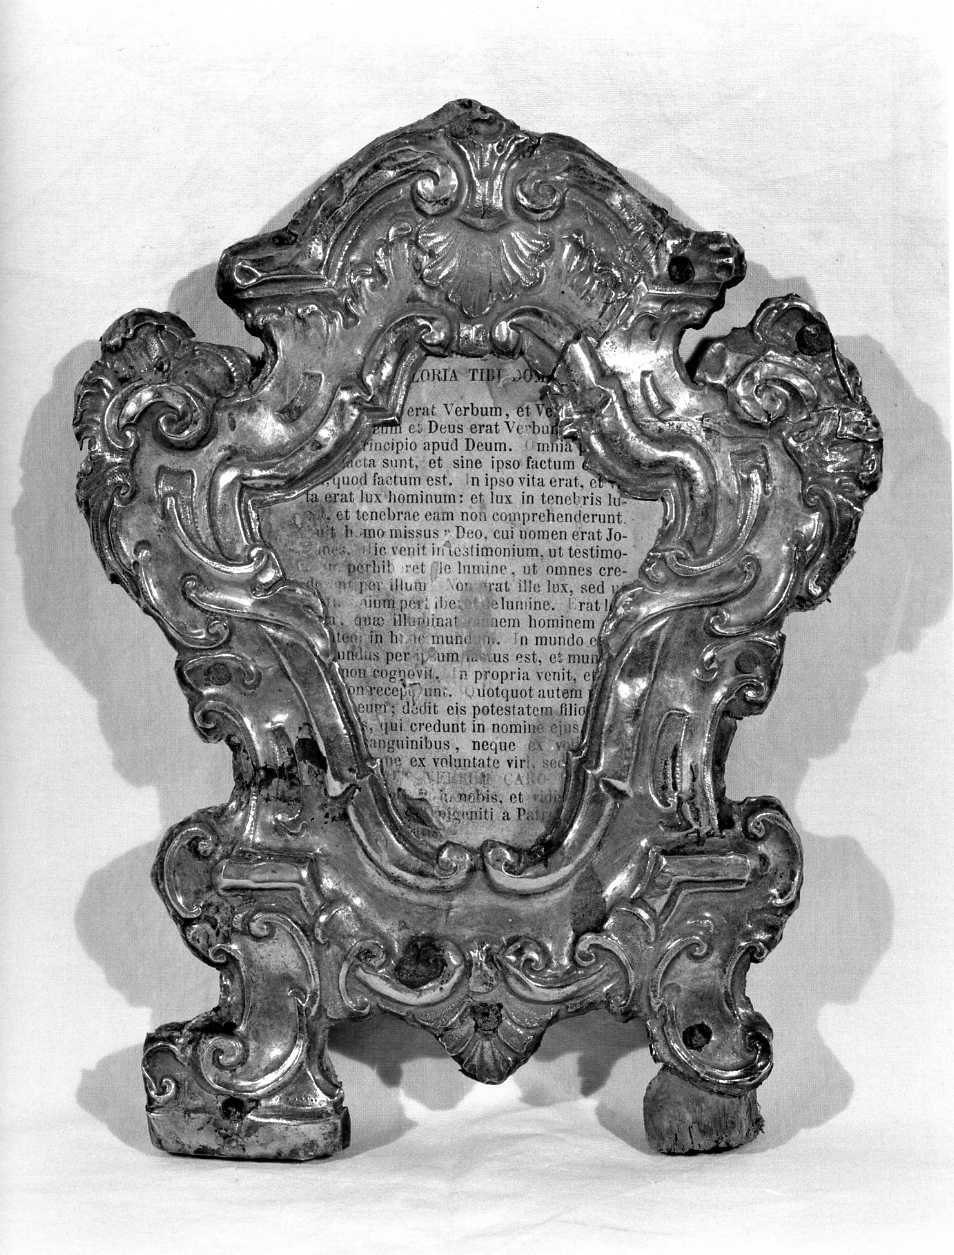 GLORIA TIBI DOM
erat Verbum, et Ve
et Deus erat Verbu
rincipio apud Deum. Omnia
acta sunt, et sine ipso factum
quod factum est. In ipso vita erat, et
ta erat lux hominum: et lux in tenebris lu-
et tenebrae eam non comprehenderunt.
homo missus Deo, cui nomen erat Jo-
nes. Hic venit in testimonium, ut testimo-
perhiberet de lumine, ut omnes cre-
per illum. Non erat ille lux, sed
nium perhiberet de lumine. Erat l
quæ illuminat omnem hominem
in hunc mundum. In mundo e
undus per ipsum factus est, et mun
non cognovit. In propria venit, e
on receperunt. Quotquot autem
eum; dedit eis potestatem filio
s, qui credunt in nomine ejus
anguinibus, neque ex vo
ue ex voluntate viri, sed
VERBUM CARO
nobis, et vidi
nigeniti a Patr